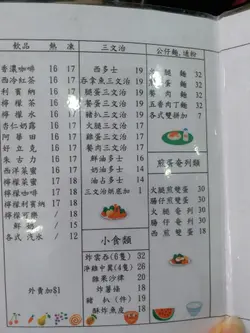 飲品 熱 凍
香濃咖啡 16 17
西冷紅茶 16 17
利賓納 16 17
檸檬茶 16 17
檸檬水 16 17
杏仁奶露 16 17
阿華田 16 17
好立克 16 17
朱古力 16 17
西洋菜蜜 16 17
檸檬菜蜜 16 17
檸檬咖啡 17 18
檸檬利賓納 17 18
檸檬可樂 / 18
鮮奶 / 15
各式汽水 / 12
外賣加$1
三文治
西多士 19
吞拿魚三文治 19
腿蛋三文治 19
餐蛋三文治 19
豬扒三文治 19
火腿三文治 19
鮮油多士 16
奶油多士 16
油占多士 14
三文治烘底加 1
小食類
炸雲吞(6隻) 32
淨雞中翼(4隻) 26
雜果沙律 20
炸薯條 18
豬扒(件) 19
酥炸魚皮 18
公仔麵,通粉
火腿麵 32
腸仔麵 32
餐肉麵 32
五香肉丁麵 32
各式雙拼加 7
煎蛋奄列類
火腿煎雙蛋 30
腸仔煎雙蛋 30
火腿奄列 30
西煎雙蛋 28